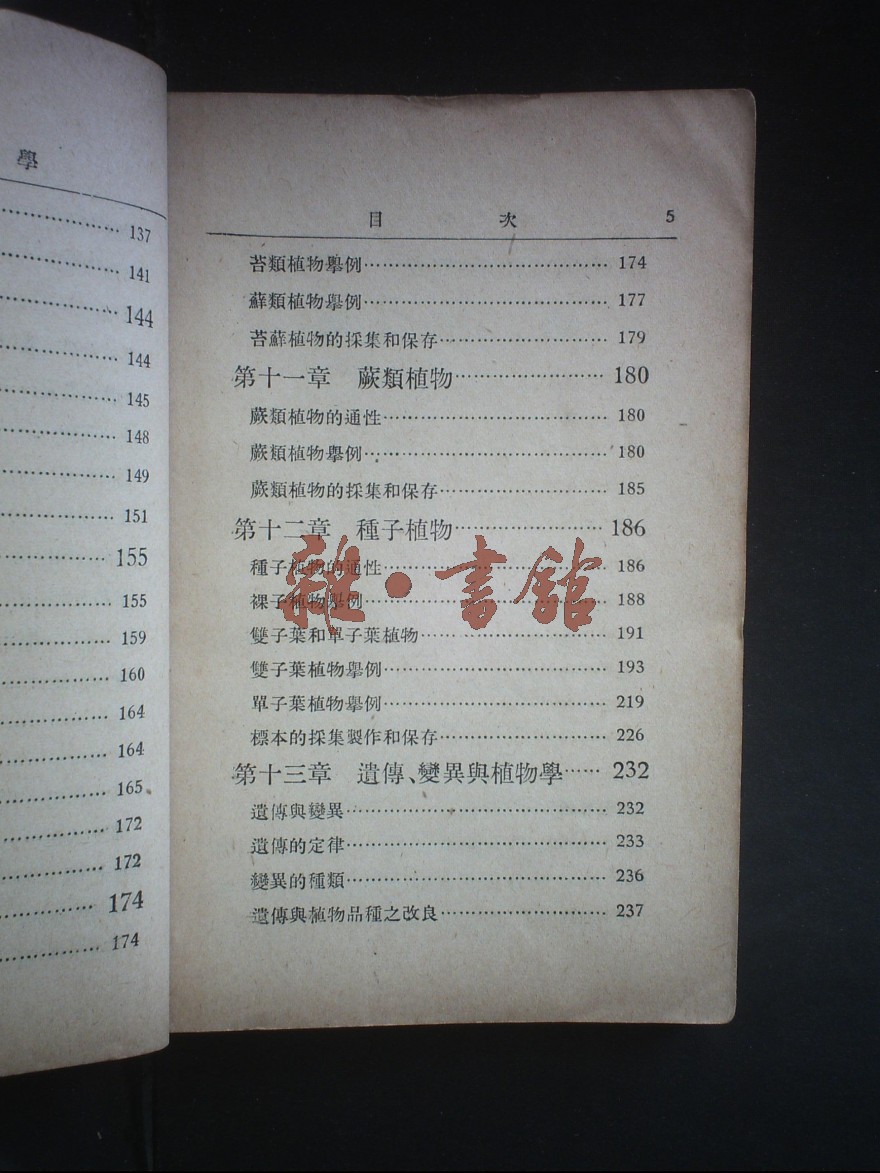 學
137
141
144
144
145
148
149
151
155
155
159
160
164
164
165
172
172
174
174
目 次 5
苔類植物擧例 174
蘚類植物擧例 177
苔蘚植物的採集和保存 179
第十一章 蕨類植物 180
蕨類植物的通性 180
蕨類植物擧例 180
蕨類植物的採集和保存 185
第十二章 種子植物 186
種子植物的通性 186
裸子植物擧例 188
雙子葉和單子葉植物 191
雙子葉植物擧例 193
單子葉植物擧例 219
標本的採集製作和保存 226
第十三章 遺傳、變異與植物學 232
遺傳與變異 232
遺傳的定律 233
變異的種類 236
遺傳與植物品種之改良 237
雜·書館